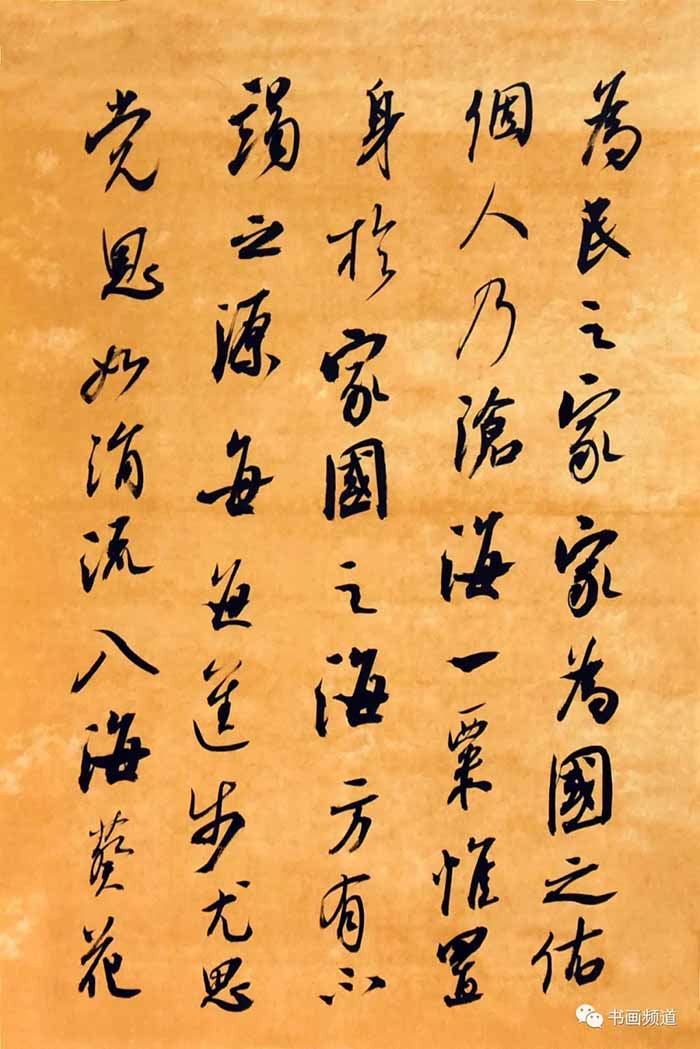 為民之家家為國之佑
個人乃滄海一粟惟置
身於家國之海方有不
竭之源每每進步尤思
党恩如涓流入海葵花
书画频道